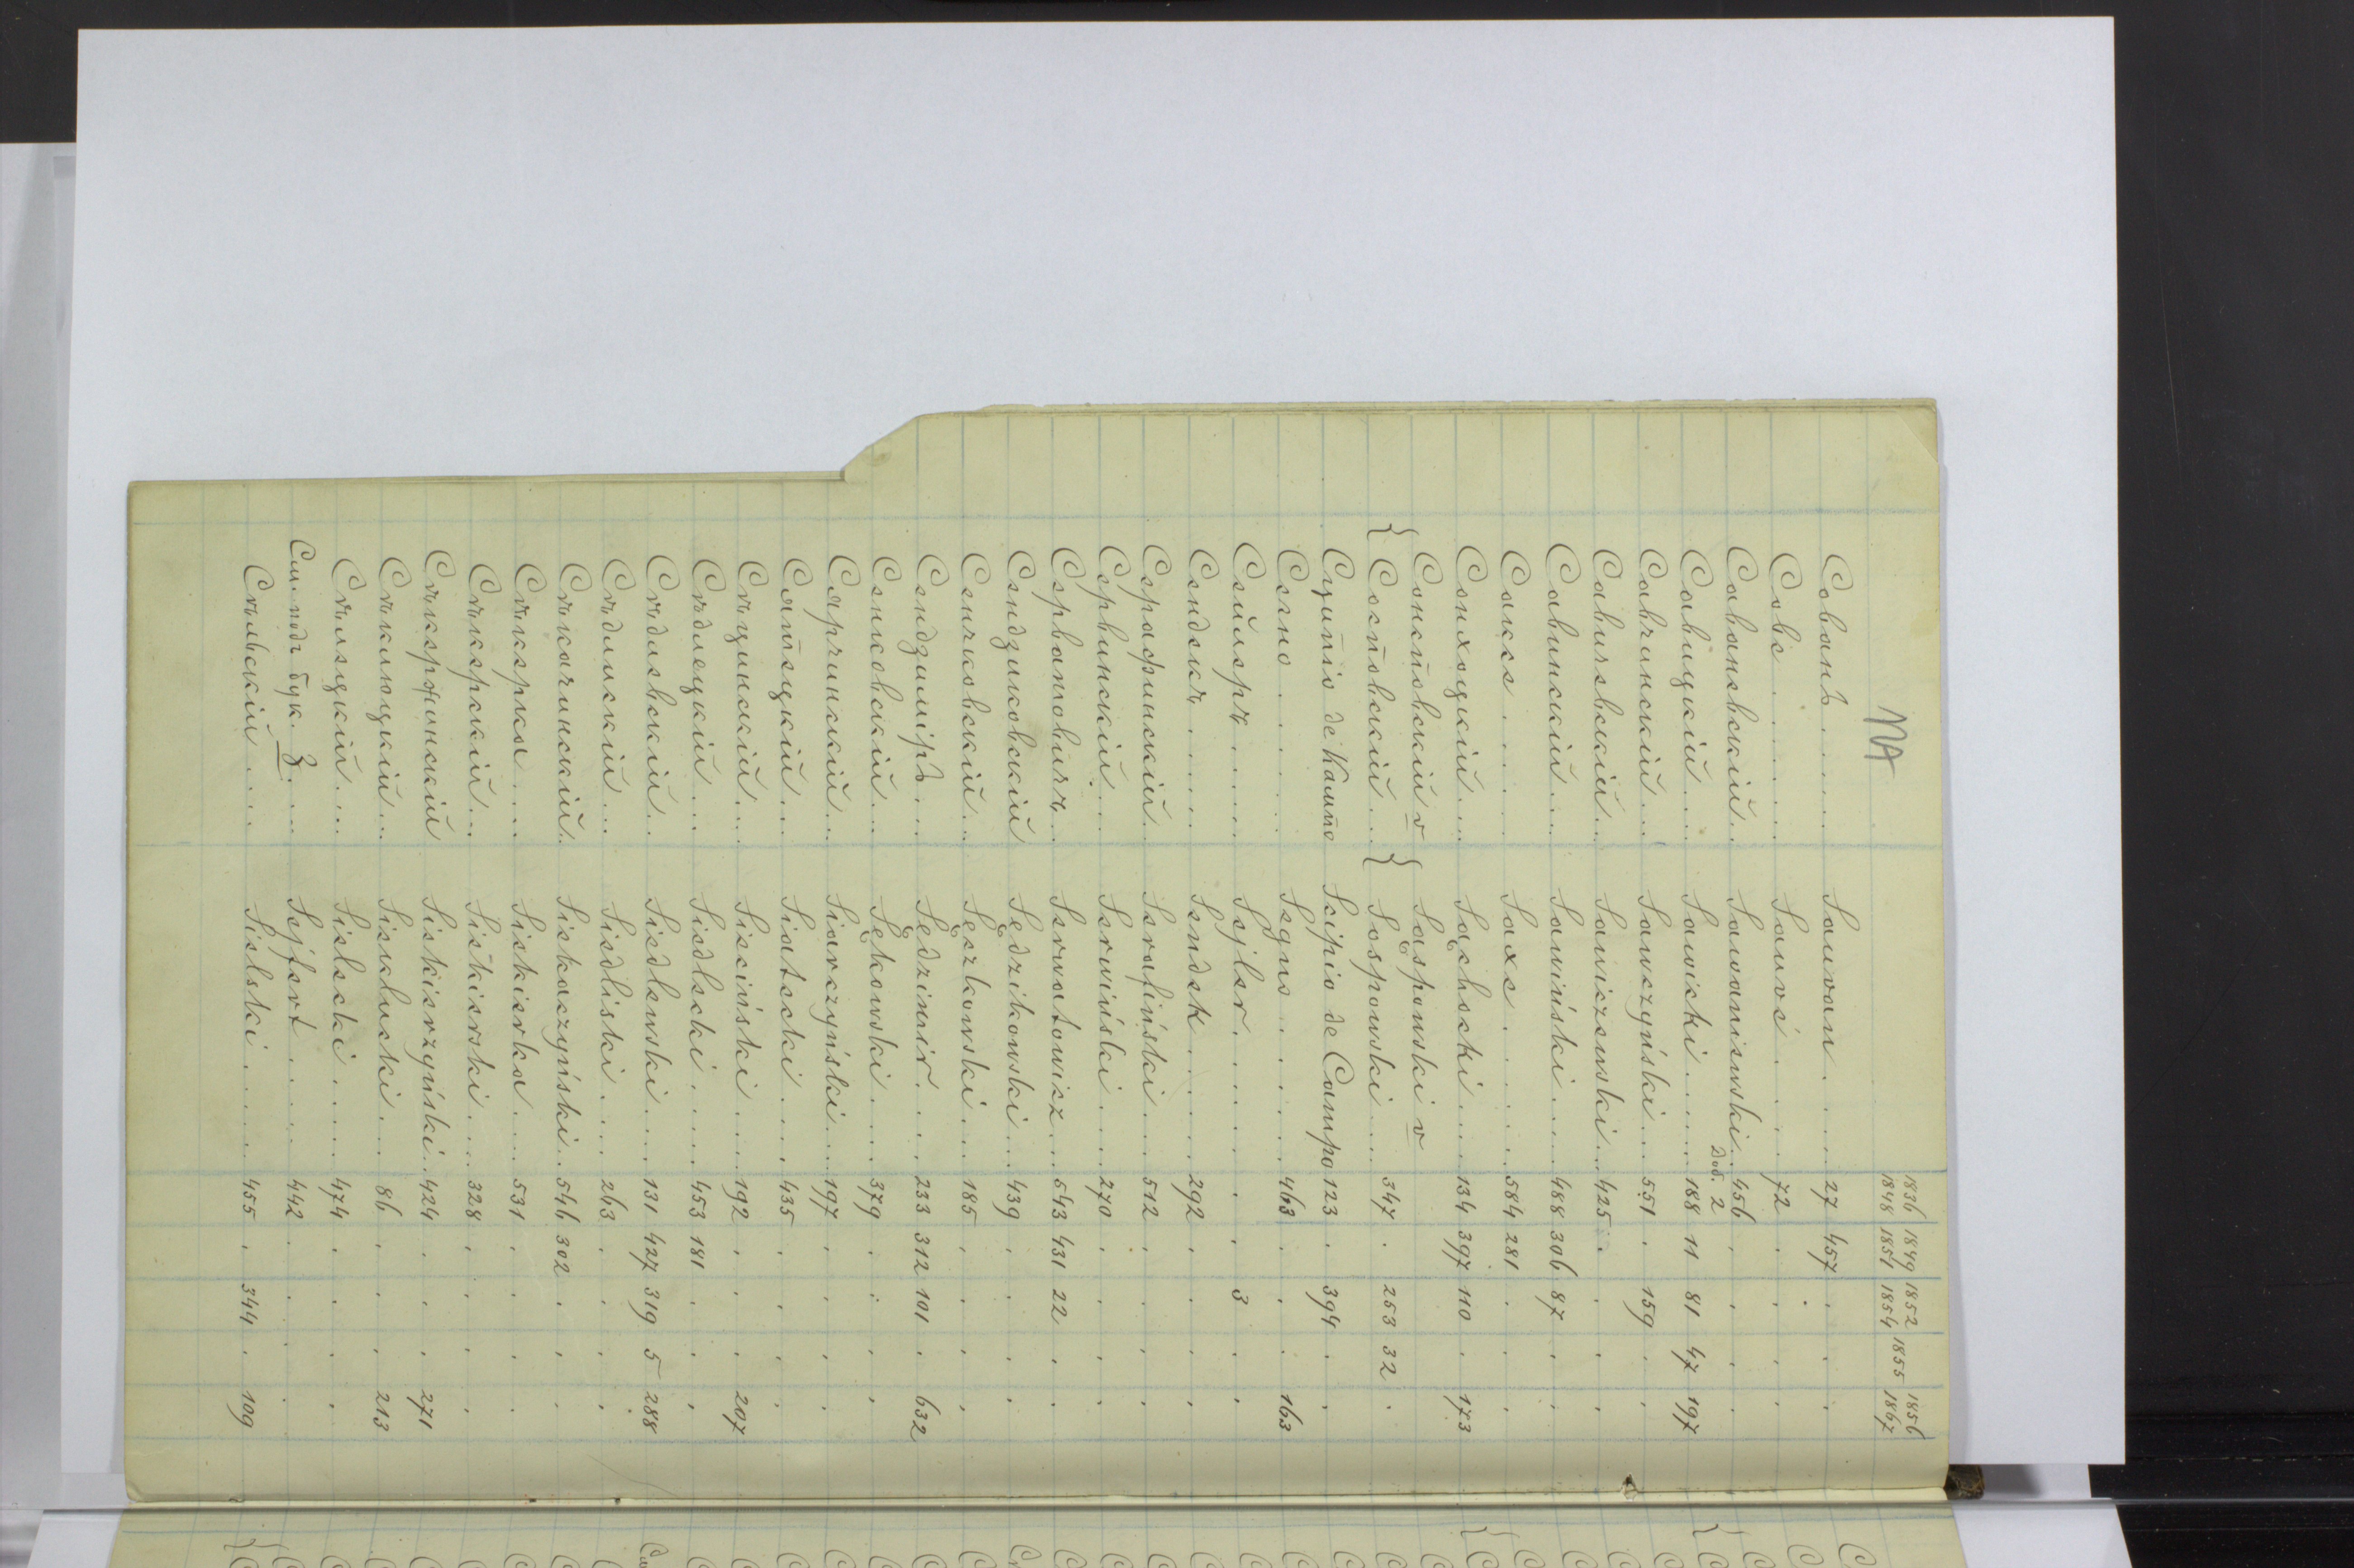 NA
1836 1849 1852 1855 1856
1848 1851 1854 1867
Совань..... Sowan.... 27 457 . . .
Совѣ...... Sowé.... 72 . . . .
Саванѣвскій.. Sawaniewski.. 456 . . . .
Доб. 2
Савицкій.... Sawicki..... 188 11 81 47 197
Савчинскій... Sawczyński... 551 . 159 . .
Савичевскій... Sawiczewski... 425 . . . .
Савинскій.... Sawiński.... 488 306 87 . .
Саксе...... Saxe...... 584 281 . . .
Сонхоцкій.... Sąchocki.... 134 397 110 . 173
{ Сонсповскій v { Sąspowski v
Сосповскій... Sospowski... 347 . 253 32 .
Сципіо де Кампо Scipio de Campo 123 . 394 . .
Сегно...... Segno...... 463 . . . 163
Сейлеръ..... Sejler...... . . 3 . .
Сендекъ..... Sendek..... 292 . . . .
Серафинскій.. Serafiński... 512 . . . .
Сервинскій... Serwiński... 270 . . . .
Серватовичъ.. Serwatowicz... 543 431 22 . .
Сендзиковскій Sędzikowski.. 439 . . . .
Сенчковскій.. Sęczkowski... 185 . . . .
Сендзиміръ... Sędzimir.... 233 312 101 . 632
Сенковскій... Sękowski.... 379 . . . .
Сярчинскій... Siarczyński... 197 . . . .
Сятецкій.... Siatecki.... 435 . . . .
Сѣцинскій... Sieciński.... 192 . . . 207
Сѣдлецкій... Siedlecki.... 453 181 . . .
Сѣдлевскій.. Siedlewski... 131 427 319 5 288
Сѣдлискій... Siedliski.... 263 . . . .
Сѣкачинскій. Siekaczyński.. 546 302 . . .
Сѣкерка.... Siekierka.... 531 . . . .
Сѣкерскій... Siekierski.... 328 . . . .
Сѣкержинскій Siekierzyński.. 424 . . . 271
Сѣклюцкій... Sieklucki.... 86 . . . 213
Сѣлецкій.... Sielecki.... 474 . . . .
См. подъ бук. З.... Sejfert..... 442 . . . .
Сѣльскій.... Sielski..... 455 . 344 . 109